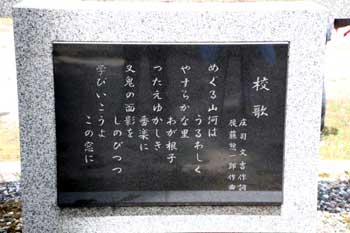 校歌
庄司文吉作詞
後藤惣一郎作曲
めぐる山河は
うるわしく
やすらかな里
わが根子
つたえゆかしき
番楽に
又鬼の面影を
しのびつつ
学びいこうよ
この窓に